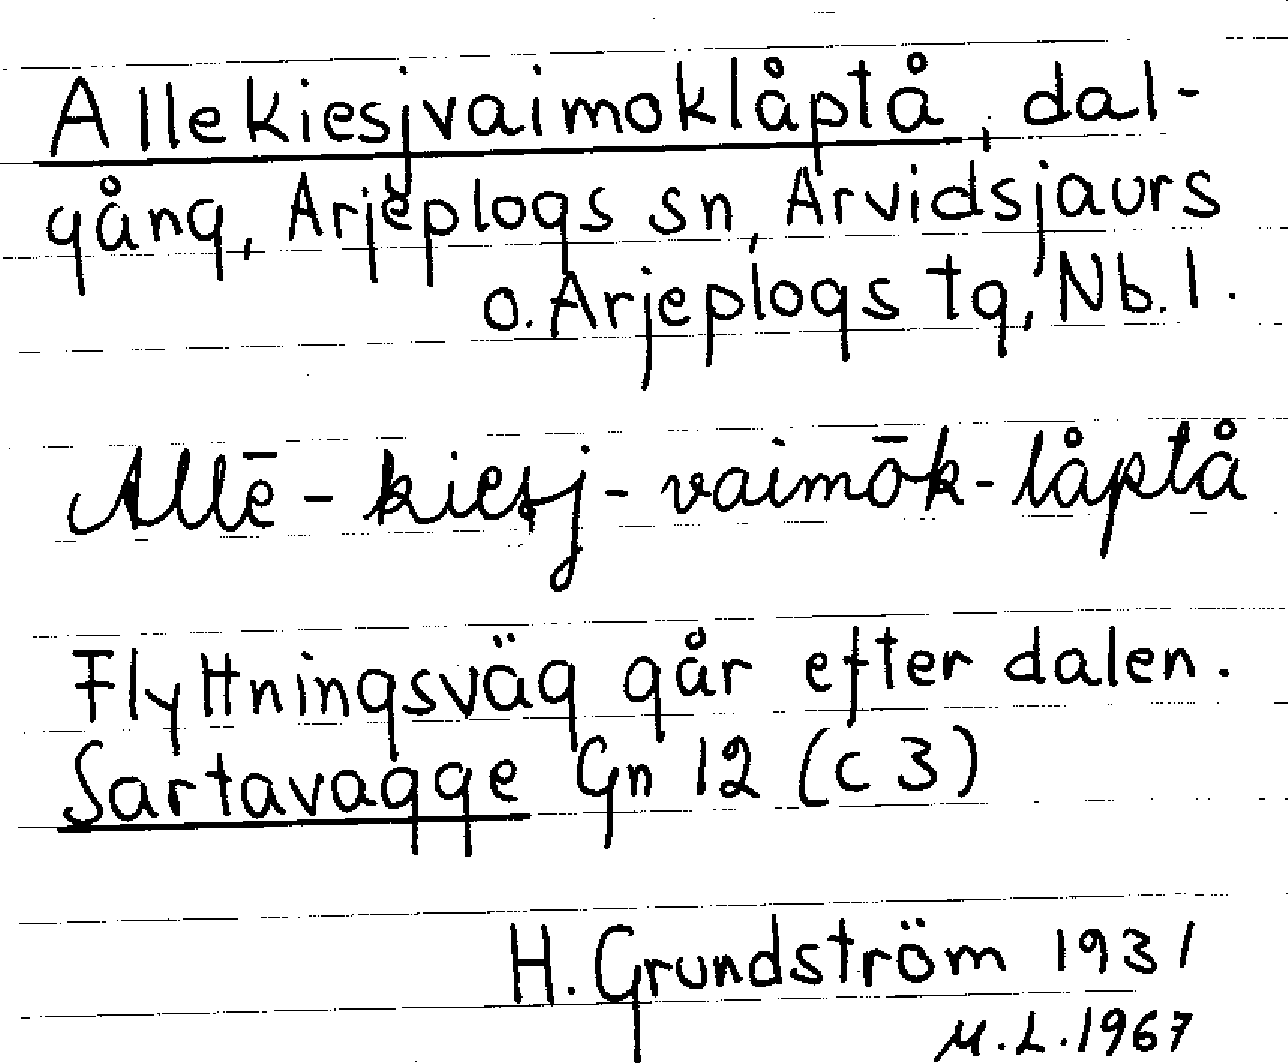 Allekiesjvaimoklåptå, dal-
gång, Arjeplogs sn, Arvidsjaurs
o. Arjeplogs tg, Nb. l.
Allē - kiesj - vaimōk - låptå
Flyttningsväg går efter dalen.
Sartavagge Gn 12 (c 3)
H. Grundström 1931
M. L. 1967